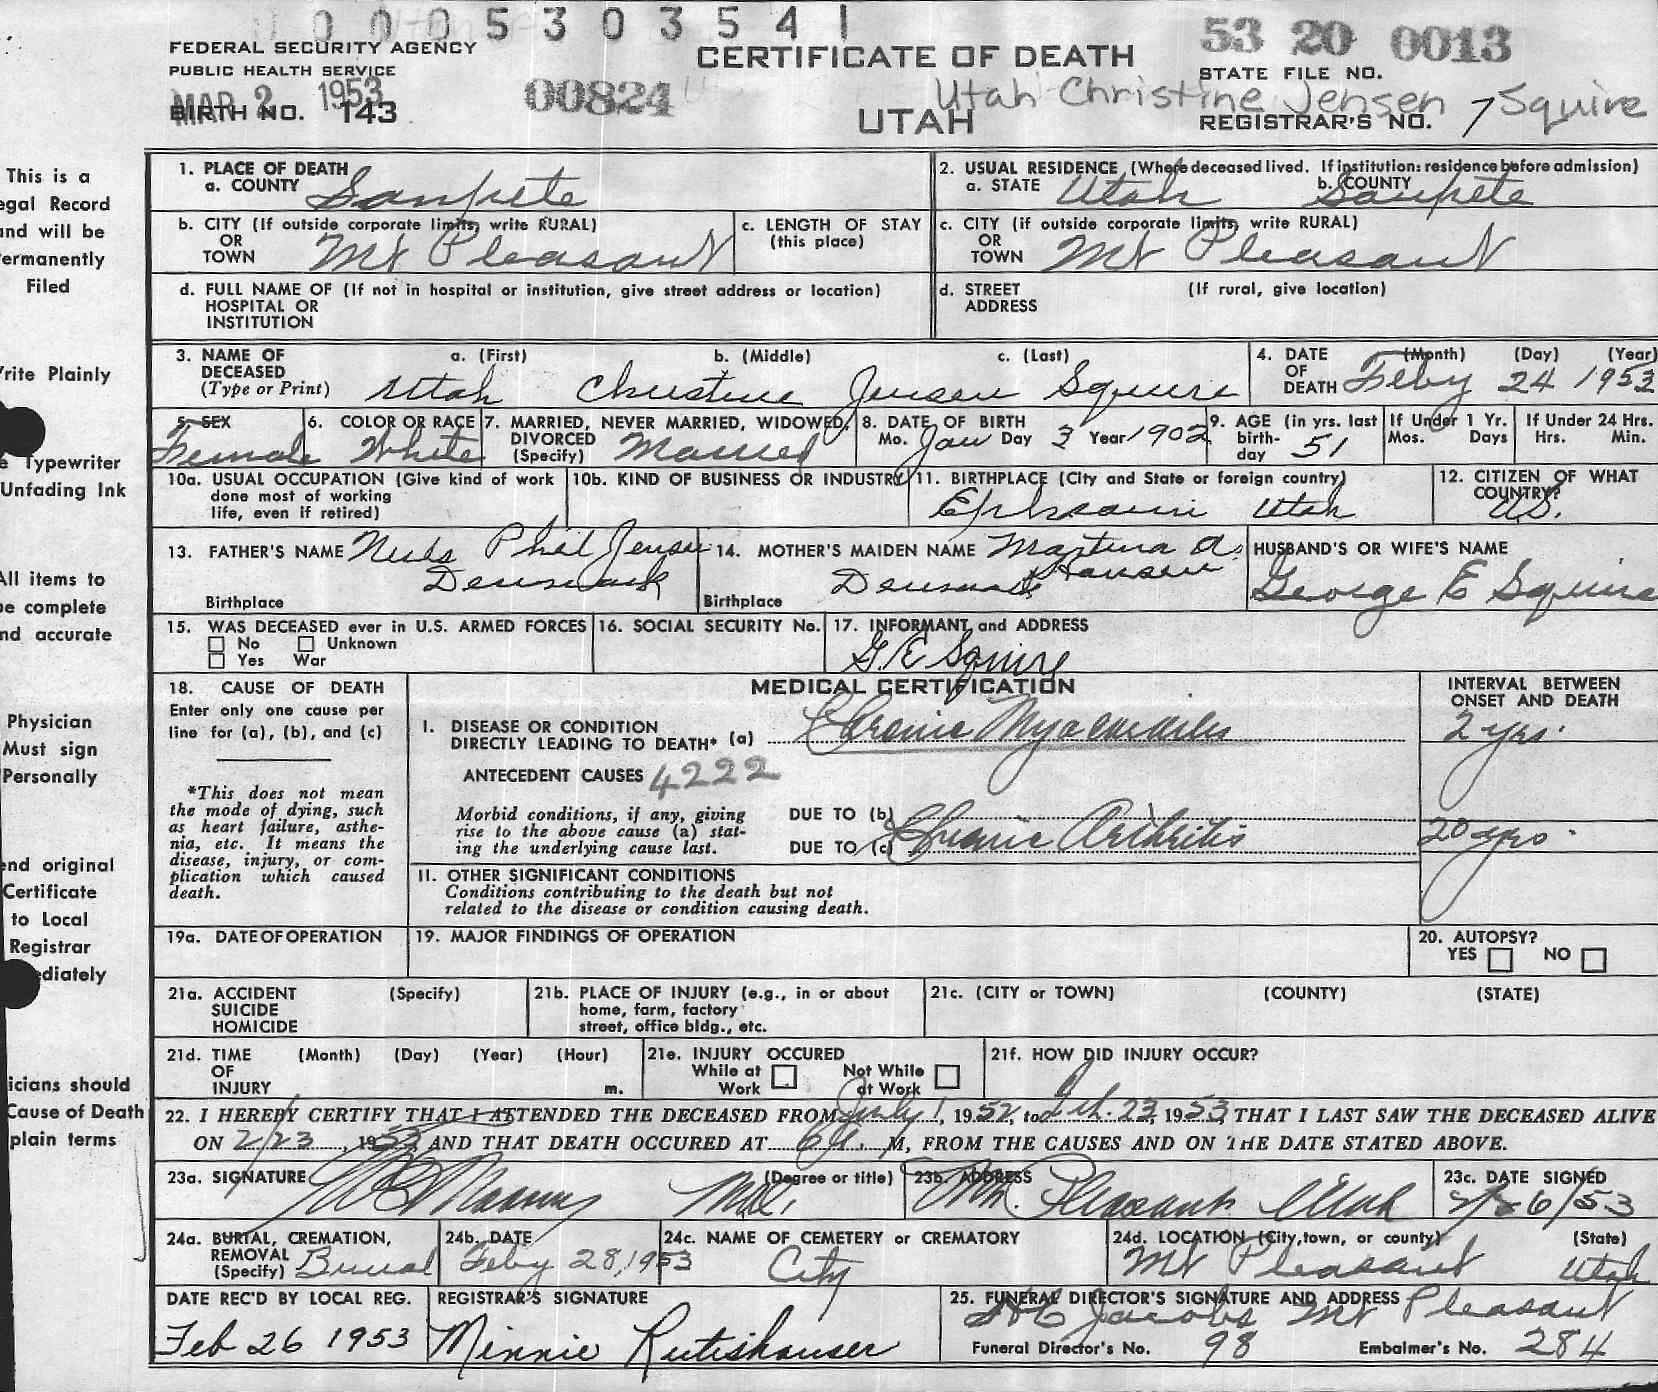 0 0 0 5 3 0 3 5 4 1
FEDERAL SECURITY AGENCY
PUBLIC HEALTH SERVICE
MAR 2 1953
BIRTH NO. 143
00824
CERTIFICATE OF DEATH
UTAH
53 20 0013
STATE FILE NO.
Utah Christine Jensen Squire
REGISTRAR'S NO. 7
This is a
egal Record
and will be
ermanently
Filed
rite Plainly
e Typewriter
Unfading Ink
All items to
be complete
nd accurate
Physician
Must sign
Personally
end original
Certificate
to Local
Registrar
ediately
icians should
Cause of Death
plain terms
1. PLACE OF DEATH
a. COUNTY Sanpete
2. USUAL RESIDENCE (Where deceased lived. If institution: residence before admission)
a. STATE Utah b. COUNTY Sanpete
b. CITY (If outside corporate limits, write RURAL)
OR
TOWN Mt Pleasant
c. LENGTH OF STAY
(this place)
c. CITY (if outside corporate limits, write RURAL)
OR
TOWN Mt Pleasant
d. FULL NAME OF (If not in hospital or institution, give street address or location)
HOSPITAL OR
INSTITUTION
d. STREET (If rural, give location)
ADDRESS
3. NAME OF DECEASED a. (First) b. (Middle) c. (Last)
(Type or Print) Utah Christine Jensen Squire
4. DATE OF DEATH (Month) (Day) (Year)
Feby 24 1953
5. SEX
Female
6. COLOR OR RACE
White
7. MARRIED, NEVER MARRIED, WIDOWED,
DIVORCED
(Specify) Married
8. DATE OF BIRTH
Mo. Jan Day 3 Year 1902
9. AGE (in yrs. last
birth-
day 51
If Under 1 Yr.
Mos. Days
If Under 24 Hrs.
Hrs. Min.
10a. USUAL OCCUPATION (Give kind of work
done most of working
life, even if retired)
10b. KIND OF BUSINESS OR INDUSTRY
11. BIRTHPLACE (City and State or foreign country)
Ephraim Utah
12. CITIZEN OF WHAT
COUNTRY?
U.S.
13. FATHER'S NAME Phil Jensen
Denmark
Birthplace
14. MOTHER'S MAIDEN NAME Martina A.
Hansen
Denmark
Birthplace
HUSBAND'S OR WIFE'S NAME
George E Squire
15. WAS DECEASED ever in U.S. ARMED FORCES
No Unknown
Yes War
16. SOCIAL SECURITY No.
17. INFORMANT and ADDRESS
G. E Squire
18. CAUSE OF DEATH
Enter only one cause per
line for (a), (b), and (c)
*This does not mean
the mode of dying, such
as heart failure, asthe-
nia, etc. It means the
disease, injury, or com-
plication which caused
death.
MEDICAL CERTIFICATION
I. DISEASE OR CONDITION
DIRECTLY LEADING TO DEATH* (a) Chronic Myocarditis
ANTECEDENT CAUSES 4222
Morbid conditions, if any, giving
rise to the above cause (a) stat-
ing the underlying cause last.
DUE TO (b)
DUE TO (c) Chronic Arthritis
INTERVAL BETWEEN
ONSET AND DEATH
2 yrs.
20 yrs.
II. OTHER SIGNIFICANT CONDITIONS
Conditions contributing to the death but not
related to the disease or condition causing death.
19a. DATE OF OPERATION
19. MAJOR FINDINGS OF OPERATION
20. AUTOPSY?
YES NO
21a. ACCIDENT (Specify)
SUICIDE
HOMICIDE
21b. PLACE OF INJURY (e.g., in or about
home, farm, factory
street, office bldg., etc.
21c. (CITY or TOWN) (COUNTY) (STATE)
21d. TIME (Month) (Day) (Year) (Hour)
OF
INJURY m.
21e. INJURY OCCURED
While at Not While
Work at Work
21f. HOW DID INJURY OCCUR?
22. I HEREBY CERTIFY THAT I ATTENDED THE DECEASED FROM July 1, 1952, to Feb. 23, 1953, THAT I LAST SAW THE DECEASED ALIVE
ON 2/23, 1953 AND THAT DEATH OCCURED AT 6 A. M, FROM THE CAUSES AND ON THE DATE STATED ABOVE.
23a. SIGNATURE (Degree or title)
M.D.
23b. ADDRESS
Mt. Pleasant Utah
23c. DATE SIGNED
2/26/53
24a. BURIAL, CREMATION,
REMOVAL
(Specify) Burial
24b. DATE
Feby 28, 1953
24c. NAME OF CEMETERY OR CREMATORY
City
24d. LOCATION (City, town, or county) (State)
Mt Pleasant Utah
DATE REC'D BY LOCAL REG.
Feb 26 1953
REGISTRAR'S SIGNATURE
Minnie Rutishauser
25. FUNERAL DIRECTOR'S SIGNATURE AND ADDRESS
Jacobs Mt Pleasant
Funeral Director's No. 98 Embalmer's No. 284